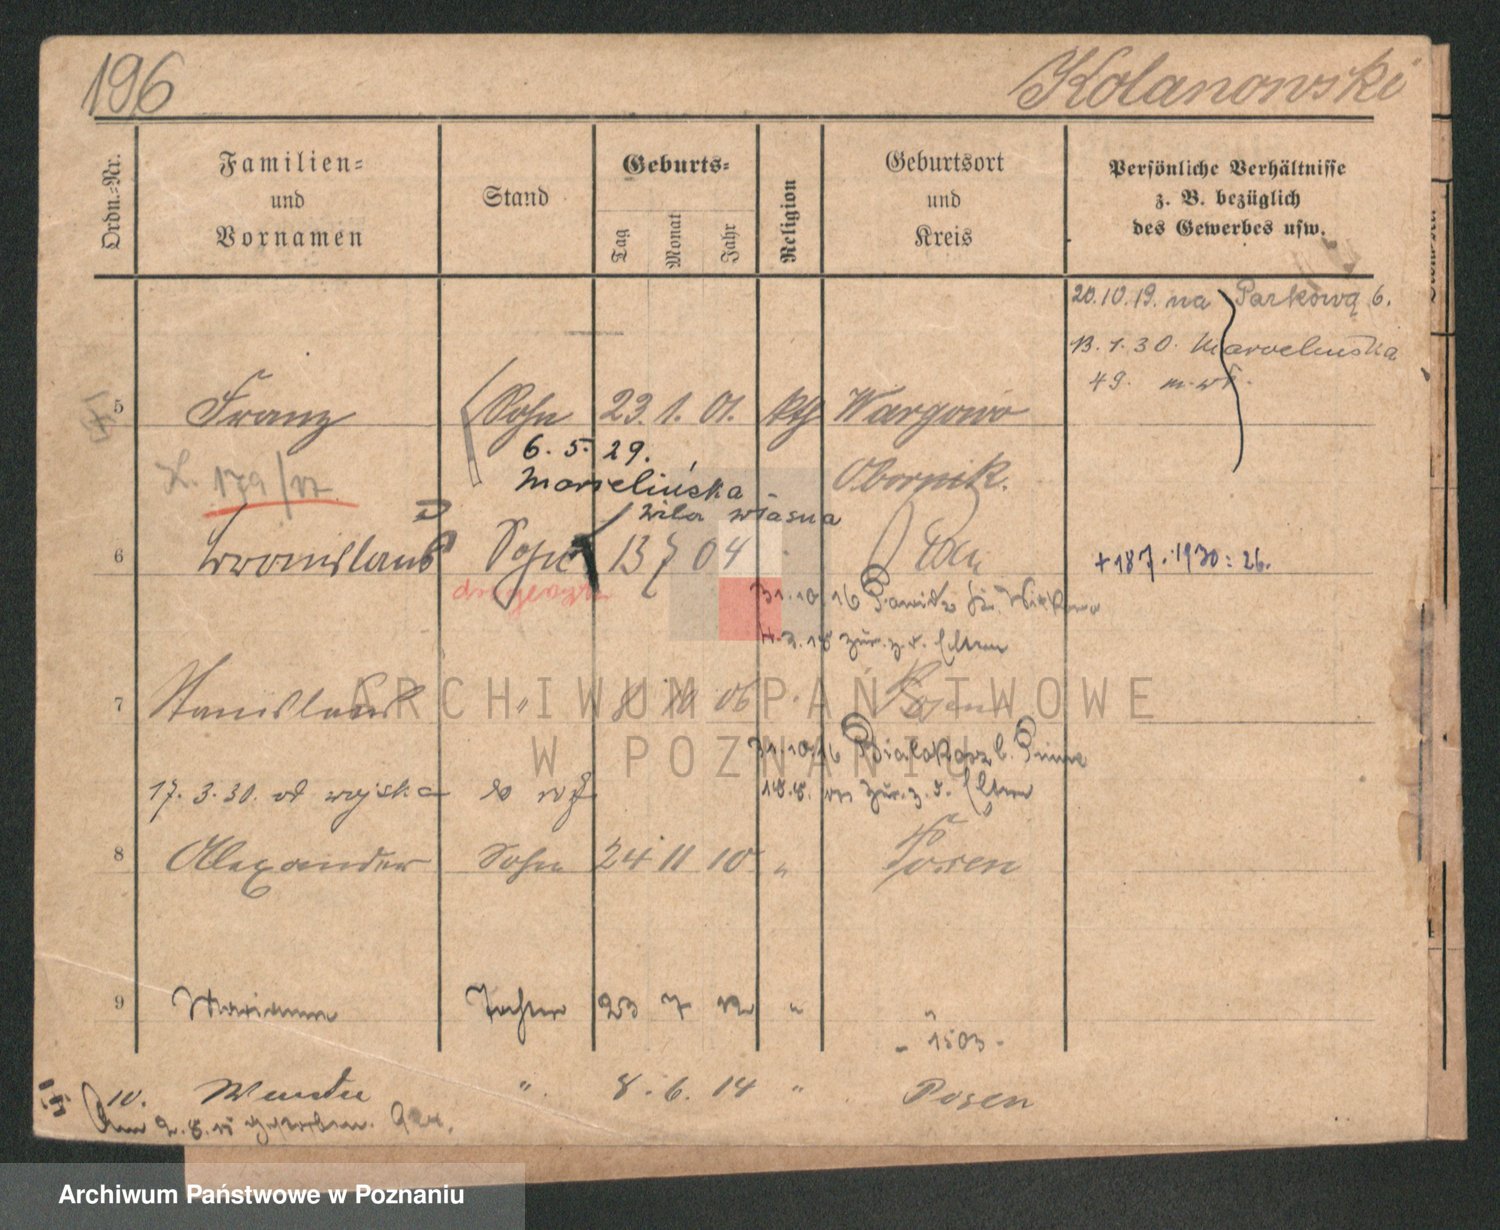 196
Kolanowski
Ordn.-Nr.
Familien-
und
Vornamen
Stand
Geburts-
Tag
Monat
Jahr
Religion
Geburtsort
und
Kreis
Persönliche Verhältnisse
z. B. bezüglich
des Gewerbes usw.
20.10.19. na Parkową 6.
13.1.30. Marcelińska
49. m. wł.
5 Franz Sohn 23. 1. 01. kth Wargowo
6. 5. 29. Obornik.
179/17 Marcelińska
willa własna
6 Bronislaus Sohn 13 7 04 + 18 7. 1930: 26.
drogerzysta
31.10.16
4.2.18 zur. z. d. Eltern
7 Stanislaus " 8 10 06 Posen
31.10.16 Bialokosz b. Pinne
17. 3. 30. od wojska 18.8. zur. z. d. Eltern
8 Alexander Sohn 24 11 10 " Posen
9 Marianne Tochter 23 7 12 " "
- 1503 -
10. Wanda " 8. 6. 14 " Posen
Am 2.8.15 gestorben.
ARCHIWUM PAŃSTWOWE
W POZNANIU
Archiwum Państwowe w Poznaniu